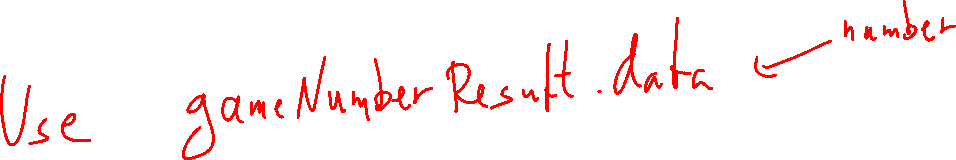 Use gameNumberResult.data ← number